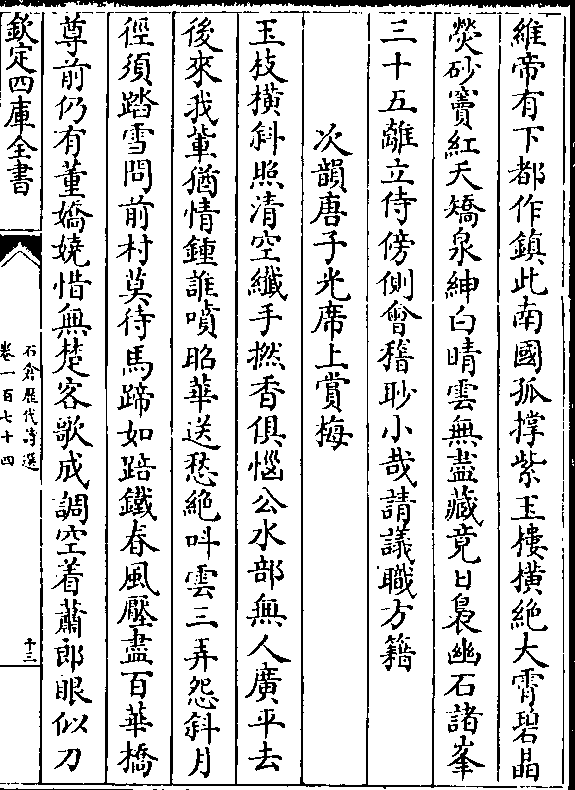 維帝有下都作鎮此南國孤撑紫玉樓橫絶大霄碧晶
熒砂竇紅夭矯泉紳白晴雲無盡藏竟日裊幽石諸峯
三十五離立侍傍側會稽眇小哉請議職方籍
次韻唐子光席上賞梅
玉枝橫斜照清空纖手撚香俱惱公水部無人廣平去
後來我輩猶情鍾誰噴昭華送愁絶叫雲三弄怨斜月
徑須踏雪問前村莫待馬蹄如踣鐵春風壓盡百華橋
尊前仍有董嬌嬈惜無楚客歌成調空着蕭郎眼似刀
欽定四庫全書
石倉歷代詩選
卷一百七十四
十三